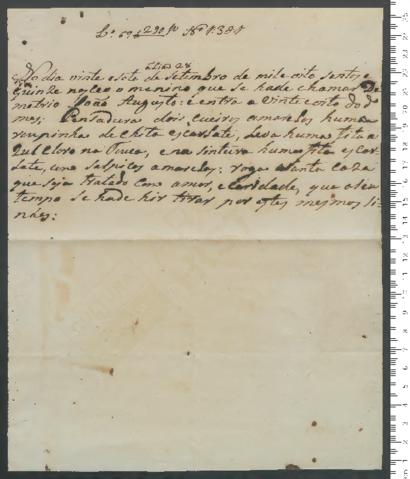 Lº 60 f 290 Nº 1381
Dia 28
No dia vinte e sete de Setembro de mil e oito sentos e
quinze nasceo o menino que se hade chamar De
metrio João Augusto: e entra a vinte e oito do do
mes; Com tadura dois Cueiros amarelos huma
roupinha de chita escarlate, Leva huma fita a
zul Claro na Touca, e na sintura huma fita escar
late, com salpicos amarelos; roga a Santa Caza
que seja tratado com amor, e Caridade, que a seu
tempo se hade hir tirar por estes mesmos si
naes: